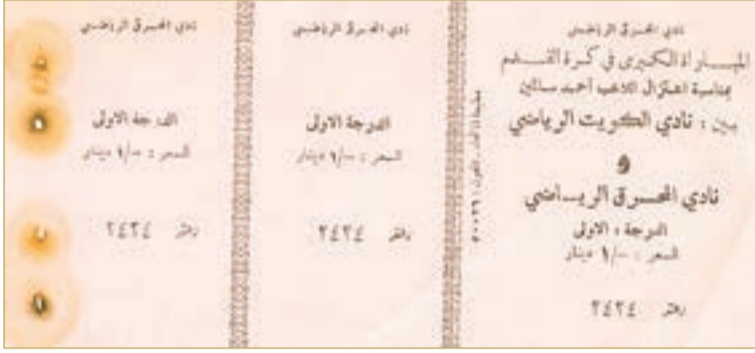 نادي المحرق الرياضي
المبـــاراة الكبرى في كـرة القـــدم
بمناسبة اعتزال اللاعب أحمد سالمين
بين : نادي الكويت الرياضي
و
نادي المحـــرق الريـــاضي
الدرجة ، الاولى
السعر : -/١ دينار
رقم ٢٤٢٤
نادي المحرق الرياضي
الدرجة الاولى
السعر : -/١ دينار
رقم ٢٤٢٤
نادي المحرق الرياضي
الدرجة الاولى
السعر : -/١ دينار
رقم ٢٤٢٤